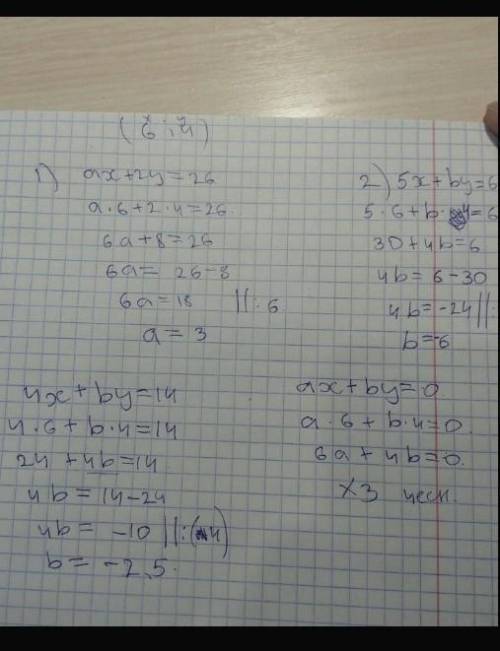 (6;4)
1) ax+2y=26
a·6+2·4=26
6a+8=26
6a= 26-8
6a=18 ||:6
a=3
2) 5x+by=6
5·6+b·4=6
30+4b=6
4b=6-30
4b=-24||:
b=-6
4x+by=14
4·6+b·4=14
24+4b=14
4b=14-24
4b= -10||:(4)
b= -2,5.
ax+by=0
a·6+b·4=0
6a+4b=0.
ХЗ чесн